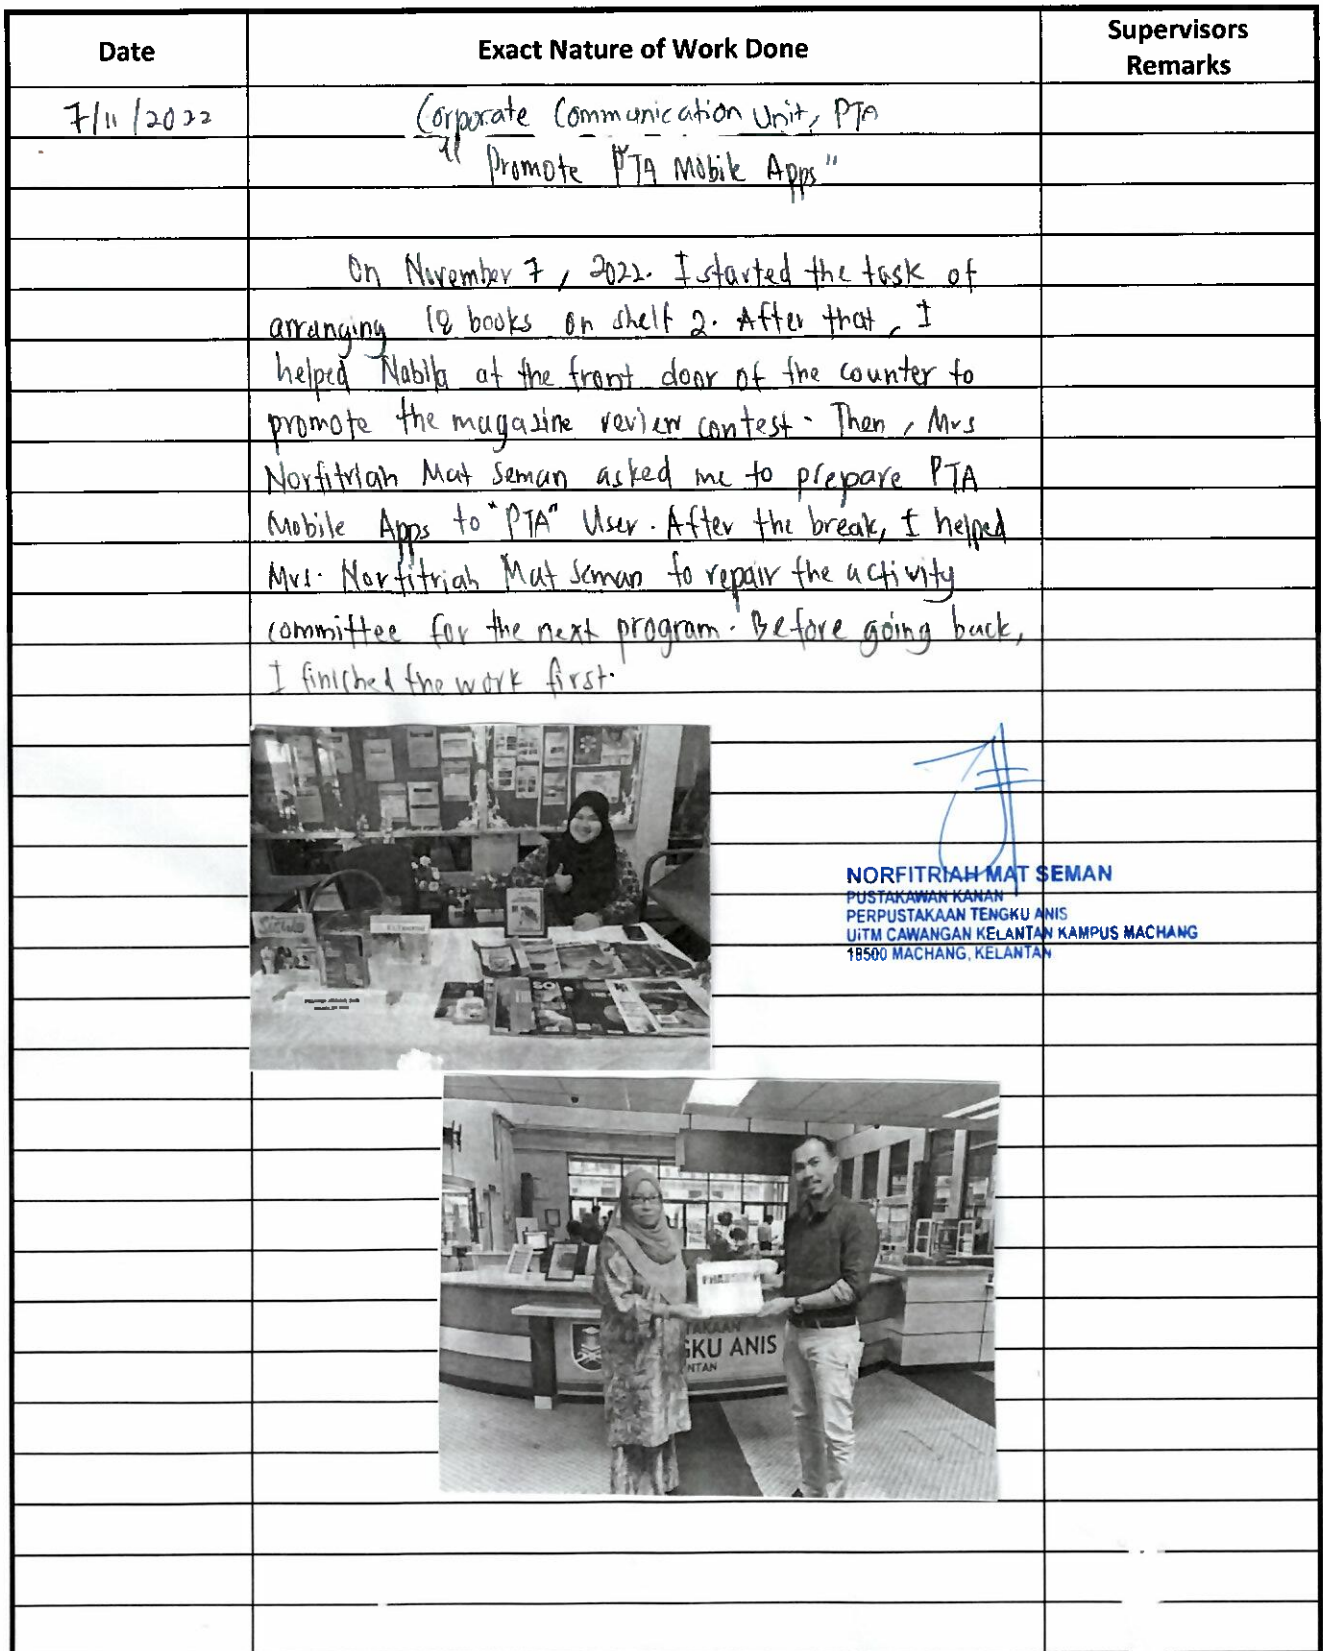 Date
Exact Nature of Work Done
Supervisors
Remarks
7/11/2022
Corporate Communication Unit, PTA
" Promote PTA Mobile Apps"
On November 7, 2022. I started the task of
arranging 18 books on shelf 2. After that, I
helped Nabila at the front door of the counter to
promote the magazine review contest. Then, Mrs
Norfitriah Mat Seman asked me to prepare PTA
Mobile Apps to "PTA" User. After the break, I helped
Mrs. Norfitriah Mat Seman to repair the activity
committee for the next program. Before going back,
I finished the work first.
NORFITRIAH MAT SEMAN
PUSTAKAWAN KANAN
PERPUSTAKAAN TENGKU ANIS
UiTM CAWANGAN KELANTAN KAMPUS MACHANG
18500 MACHANG, KELANTAN
TAKAAN
GKU ANIS
NTAN